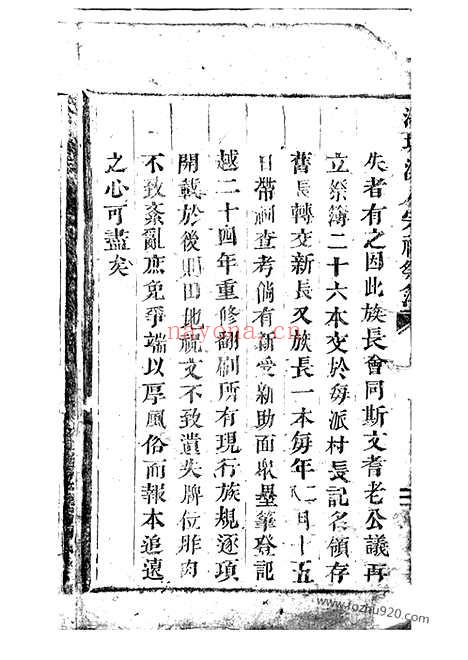 失者有之因此族長會同斯文耆老公議再
立祭簿二十六本交於每派村長記名領存
舊長轉交新長又族長一本每年二月十五
日帶祠查考倘有新受新助面眾墨筆登記
越二十四年重修翻刷所有現行族規逐項
開載於後則田地祝文不致遺失牌位胙肉
不致紊亂庶免爭端以厚風俗而報本追遠
之心可盡矣
nayona.cn
www.fozhu920.com